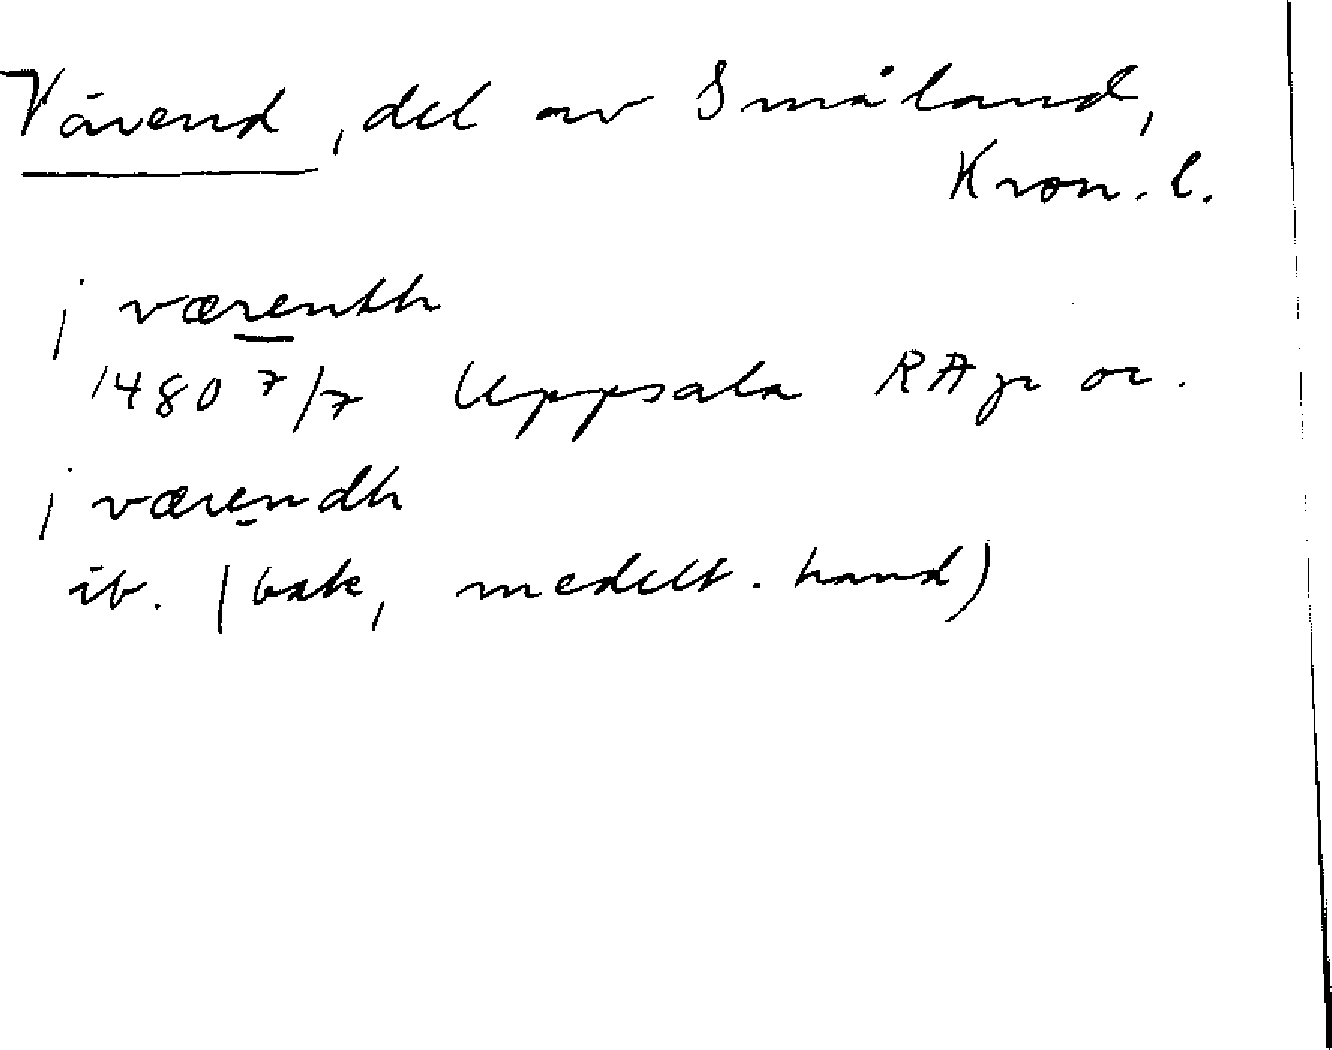 Värend, del av Småland,
Kron. l.
j værenth
1480 7/7 Uppsala RAp or.
j værendh
ib. (bak, medelt. hand)